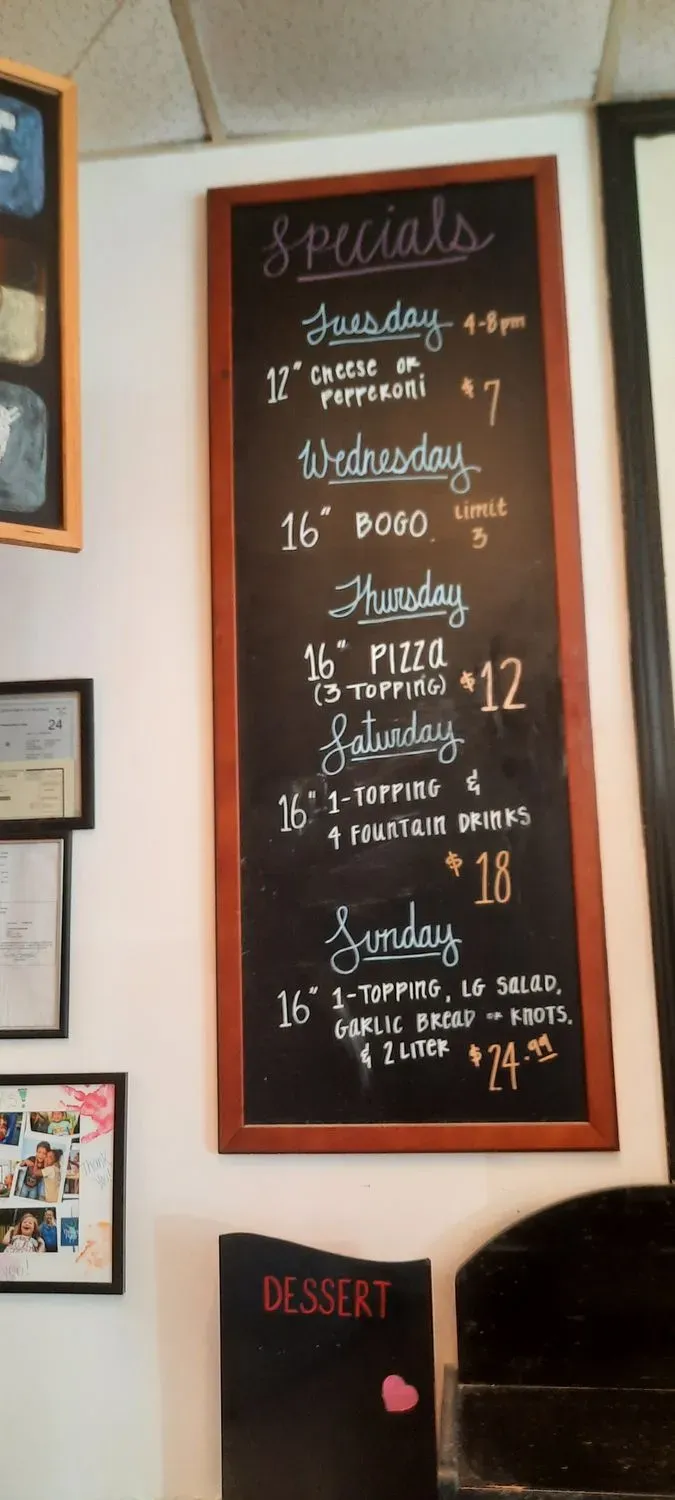 Specials
Tuesday 4-8pm
12" Cheese or
Pepperoni $7
Wednesday
16" BOGO. Limit
3
Thursday
16" PIZZA
(3 TOPPING) $12
Saturday
16" 1-TOPPING &
4 FOUNTAIN DRINKS
$18
Sunday
16" 1-TOPPING, LG SALAD,
GARLIC BREAD or KNOTS.
& 2 LITER $24.99
24
Thank
DESSERT